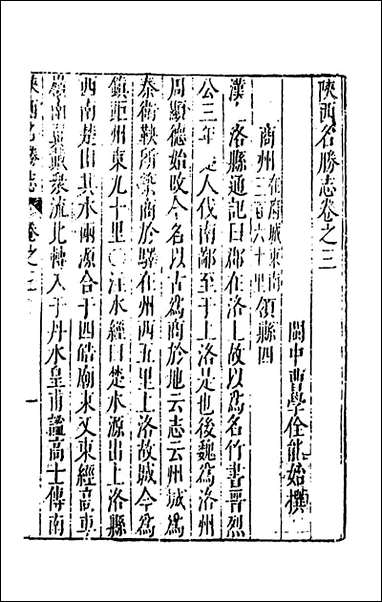 陝西名勝志卷之三
閩中曹學佺能始撰
商州在府城東南三百六十里領縣四
漢洛縣通記曰郡在洛上故以為名竹書晉烈
公三年楚人伐南鄙至于上洛是也後魏為洛州
周顯德始改今名以古為商於地云志云州城為
秦衛鞅所築商於驛在州西五里上洛故城今為
鎮距州東九十里〇注水經曰楚水源出上洛縣
西南楚山其水兩源合于四皓廟東又東經高車
嶺南翼戴眾流北轉入于丹水皇甫謐高士傳南
陝西名勝志 卷之三 一